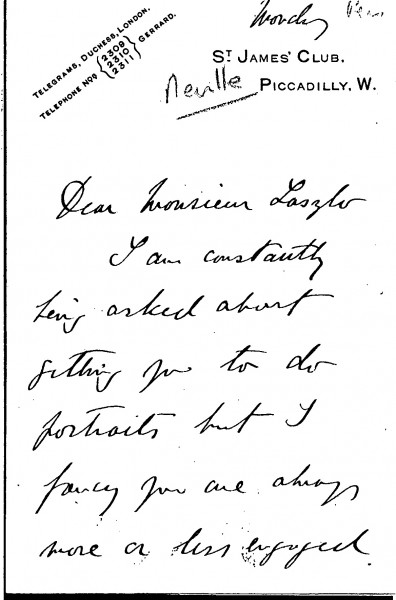 Monday
TELEGRAMS, DUCHESS, LONDON.
TELEPHONE NOS { 2309 2310 2311 } GERRARD.
ST JAMES' CLUB,
Neville PICCADILLY, W.
Dear Monsieur Laszlo
I am constantly
being asked about
getting you to do
portraits but I
fancy you are always
more or less engaged.